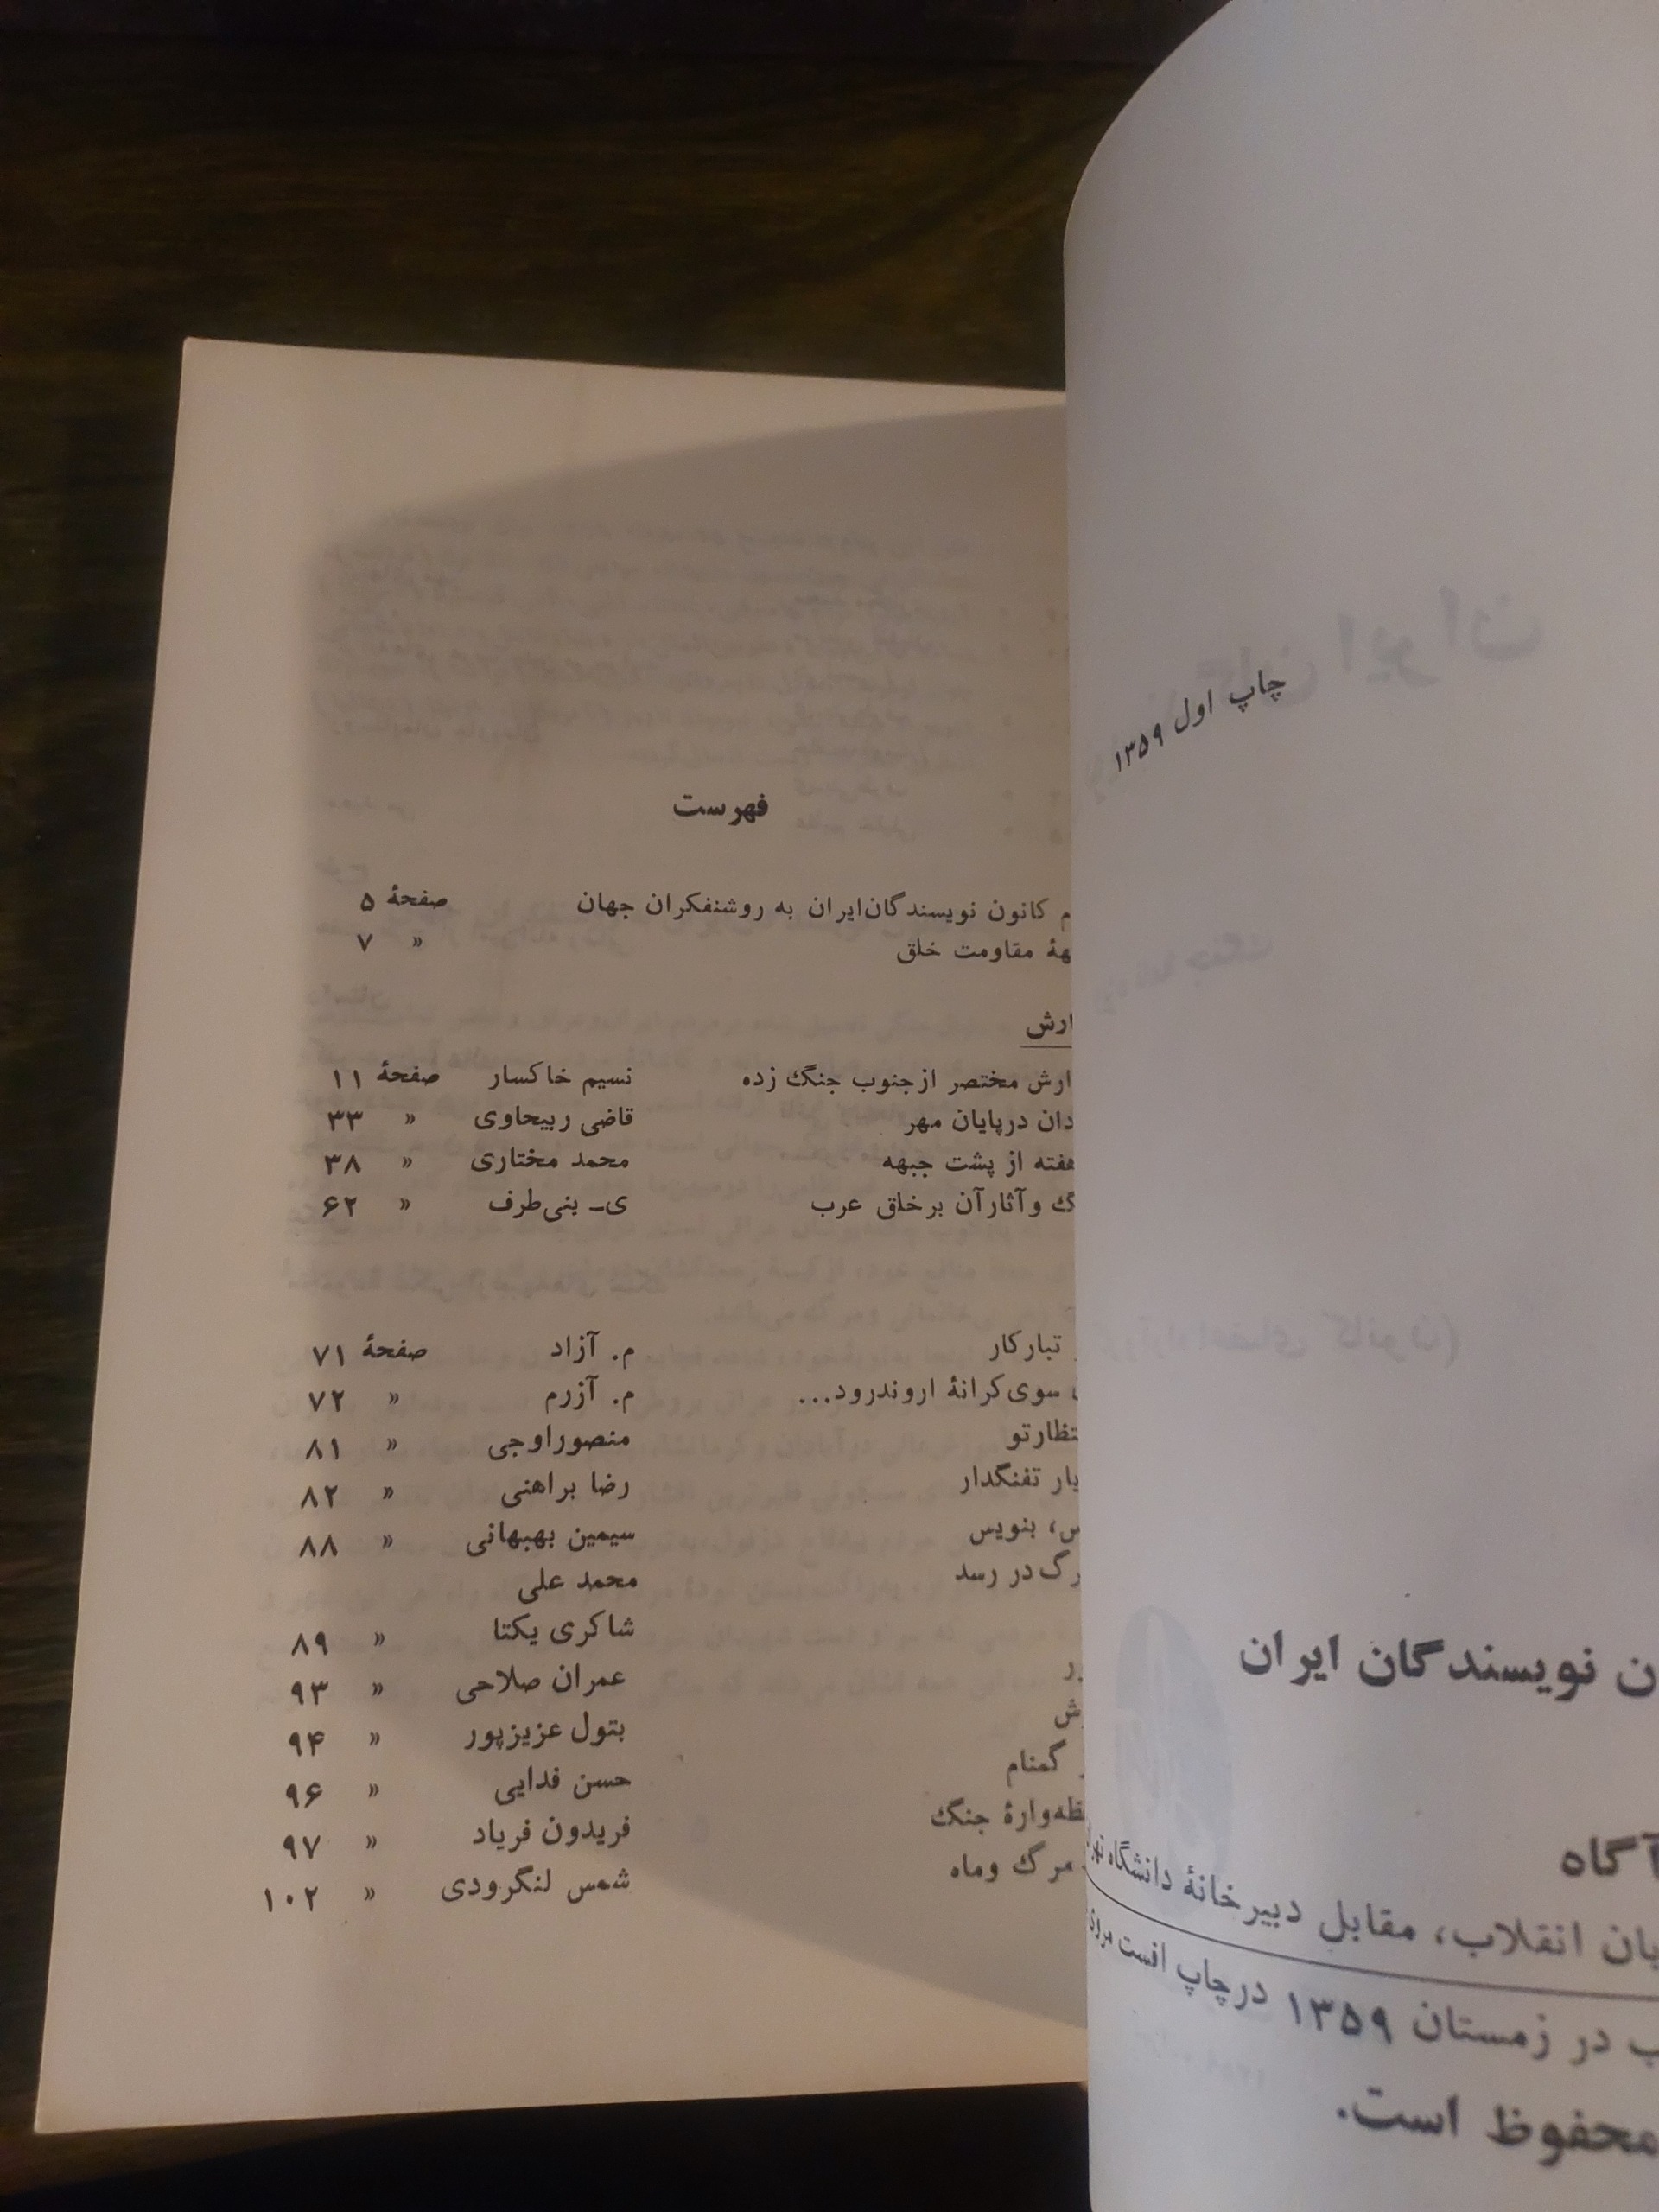 چاپ اول ۱۳۵۹
نویسندگان ایران
آگاه
انقلاب، مقابل دبیرخانهٔ دانشگاه
در زمستان ۱۳۵۹ درچاپ افست مروی
محفوظ است.
فهرست
کانون نویسندگان ایران به روشنفکران جهان صفحهٔ ۵
مقاومت خلق » ۷
مختصر ازجنوب جنگ زده نسیم خاکسار صفحهٔ ۱۱
درپایان مهر قاضی ربیحاوی » ۳۳
هفته از پشت جبهه محمد مختاری » ۳۸
وآثارآن برخلق عرب ی- بنی‌طرف » ۶۲
تبارکار م. آزاد صفحهٔ ۷۱
سوی‌کرانهٔ اروندرود... م. آزرم » ۷۲
منصوراوجی » ۸۱
تفنگدار رضا براهنی » ۸۲
بنویس سیمین بهبهانی » ۸۸
در رسد محمد علی
شاکری یکتا » ۸۹
عمران صلاحی » ۹۳
بتول عزیزپور » ۹۴
گمنام حسن فدایی » ۹۶
جنگ فریدون فریاد » ۹۷
مرگ وماه شمس لنگرودی » ۱۰۲